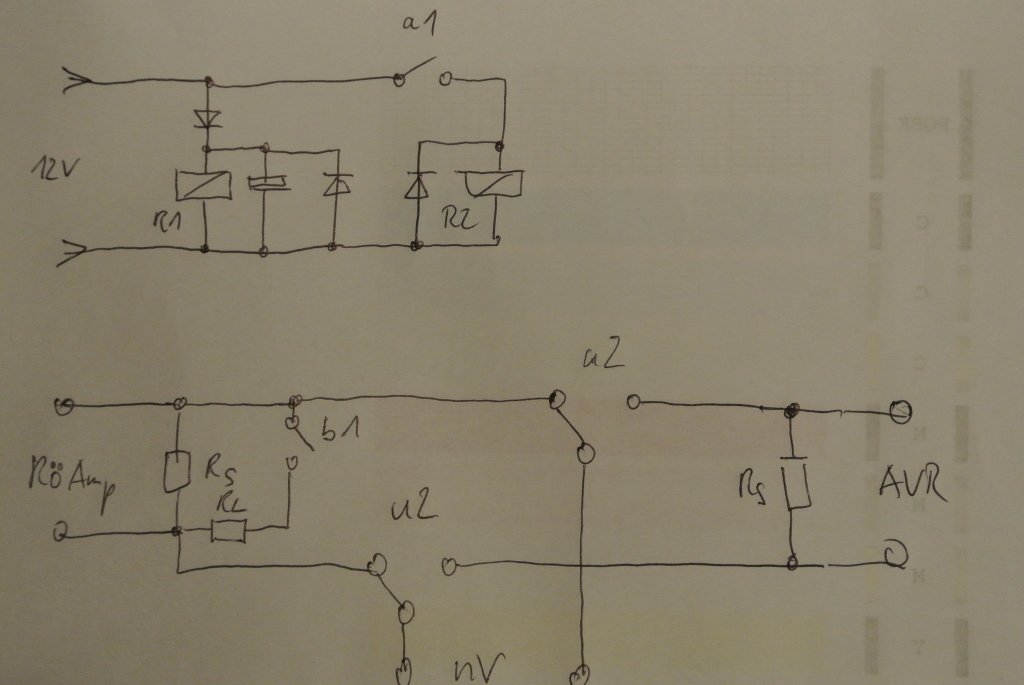 a1
12V
R1
R2
a2
b1
RöAmp
Rs
RL
u2
Rs
AVR
nV